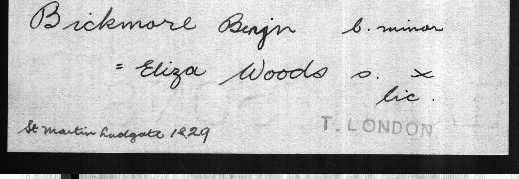 Bickmore Benjn b. minor
= Eliza Woods s. x
lic.
St Martin Ludgate 1829
T. LONDON